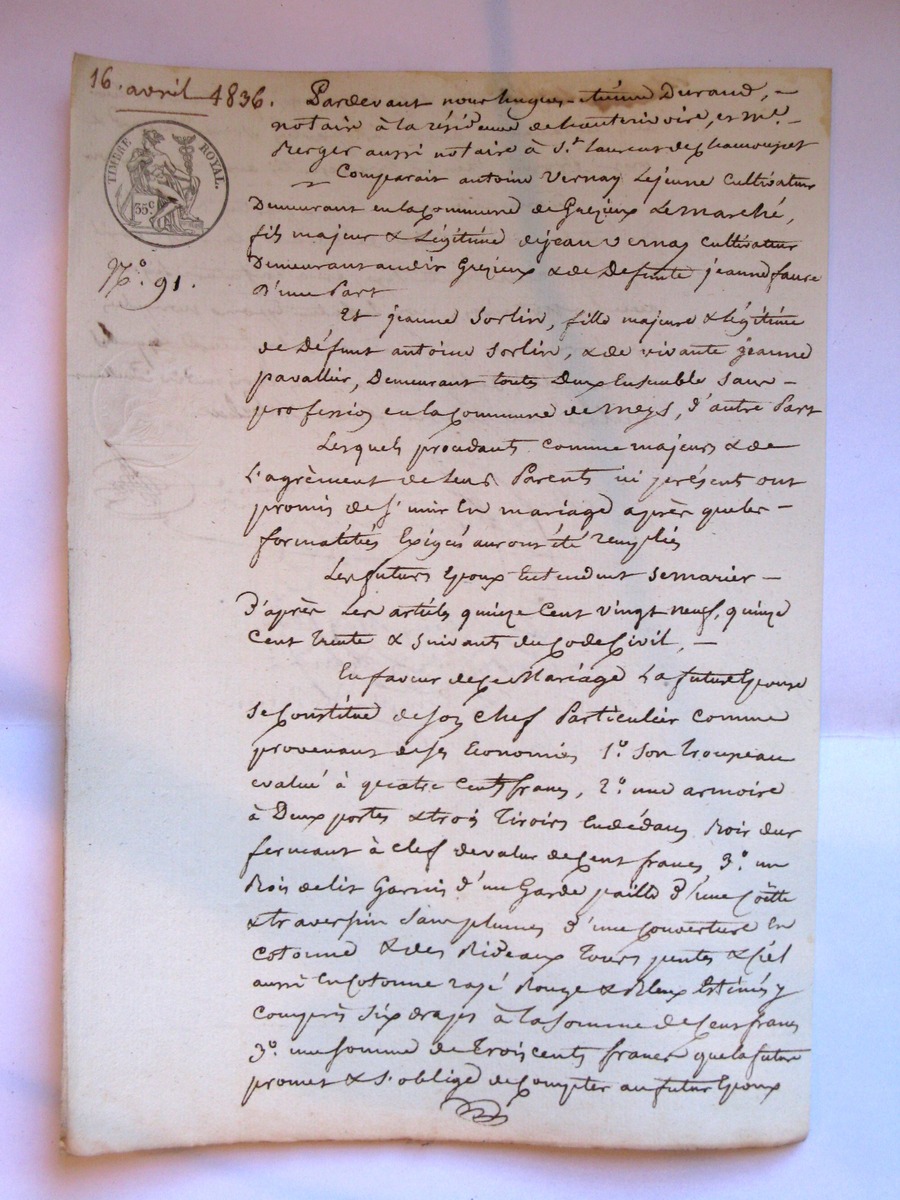 16. avril 1836.
TIMBRE ROYAL.
35 c
N.o 91.
Pardevant nous hugues-étienne Durand, –
notaire à la résidence de hauterivoire, et M.e –
Berger aussi notaire à S.t laurent de chamousset
Comparait antoine Vernay Lejeune Cultivateur
Demeurant en la commune de Grejieux Lemarché,
fils majeur & Légitime de jean vernay Cultivateur
Demeurant audit Grejieux & de Defunte jeanne faure
D'une Part
Et jeanne Sorlin, fille majeure & légitime
de Défunt antoine Sorlin, & de vivante jeanne
pavallier, Demeurant toutes Deux Ensemble sans –
profession en la Commune de meys, d'autre Part
Lesquels procedants comme majeurs & de
L'agrèment de leurs Parents ici présent ont
promis de s'unir En mariage après que les –
formalités Exigés auront été remplies
Les futurs Epoux Entendent se marier –
D'après Les articles quinze Cent vingt neuf, quinze
Cent trente & suivants du Code Civil, –
En faveur de ce Mariage La future Epouse
se Constitue de son chef Particulier comme
provenant de ses Economies 1.o son Troupeau
evalué à quatre Cents francs, 2.o une armoire
à Deux portes & trois Tiroirs En dedans Bois dur
fermant à clef de valeur de Cent francs 3.o un
Bois de lit Garnis d'un Garde paille D'une Coëtte
& traversin sans plumes d'une Couverture En
cotonne & des Rideaux Tours pentes & Ciel
aussi En Cotonne rayé Rouge & Bleux Estimés y
Compris six draps à la Somme de Cent francs
3.o une somme de Trois cents francs que la future
promet & S'oblige de Compter au futur Epoux